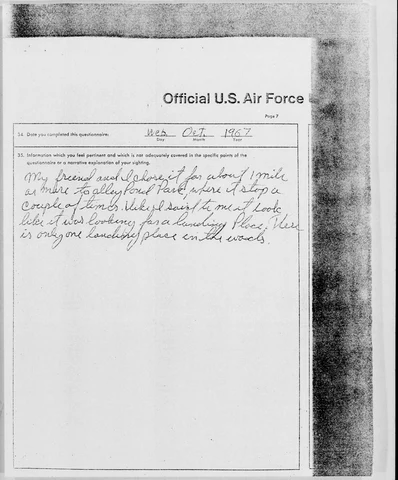 Official U.S. Air Force
Page 7
34. Date you completed this questionnaire: Wes Oct. 1967
Day Month Year
35. Information which you feel pertinent and which is not adequately covered in the specific points of the
questionnaire or a narrative explanation of your sighting.
My freend and I chase it for about 1 mile
or more to alley Pond Park, where it stop a
couple of times. like I said to me it look
like it was looking for a landing Place. There
is only one landing place in the woods.